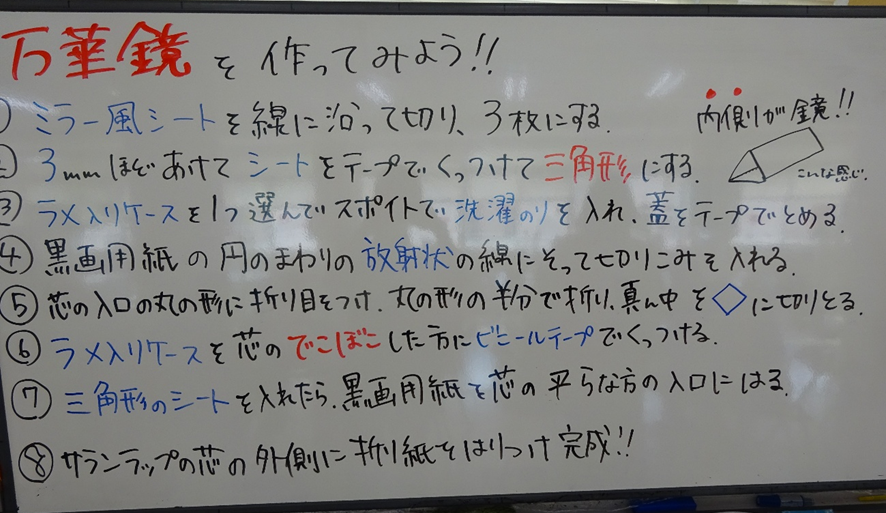 万華鏡を作ってみよう!!
① ミラー風シートを線に沿って切り、3枚にする.
内側が鏡!!
② 3mmほどあけてシートをテープでくっつけて三角形にする.
こんな感じ.
③ ラメ入りケースを1つ選んでスポイトで洗濯のりを入れ、蓋をテープでとめる.
④ 黒画用紙の円のまわりの放射状の線にそって切りこみを入れる.
⑤ 芯の入口の丸の形に折り目をつけ、丸の形の半分で折り、真ん中を◇に切りとる.
⑥ ラメ入りケースを芯のでこぼこした方にビニールテープでくっつける.
⑦ 三角形のシートを入れたら、黒画用紙を芯の平らな方の入口にはる.
⑧ サランラップの芯の外側に折り紙をはりつけ完成!!